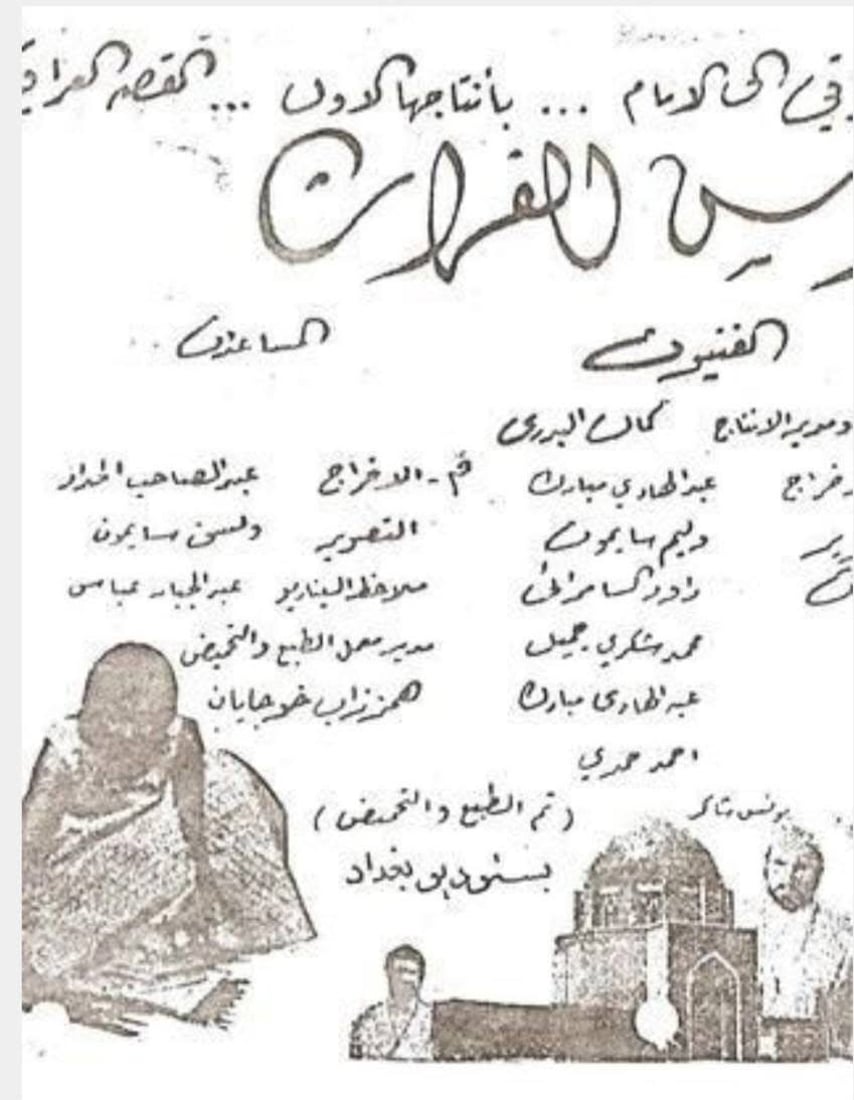 قي الى الامام ... بأنتاجها الاول ... القصه العرا
يس الفرات
الفنيون المساعدون
ومدير الانتاج كمال البدري
خراج عبدالهادي مبارك م - الاخراج عبدالصاحب الحداد
ير وليم سايمون التصوير ولسن سايمون
داود السامرائي ملاحظ السيناريو عبدالجبار عباس
محمد شكري جميل مدير معمل الطبع والتحميض
عبدالهادي مبارك خوجايان
احمد حمدي
يونس شاكر
( تم الطبع والتحميض )
بستوديو بغداد